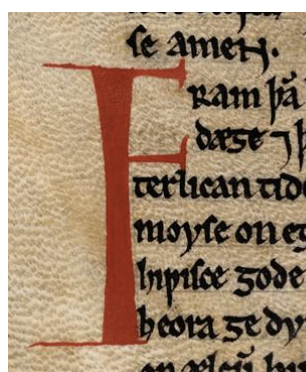 se amen.
Fram þā
dæge ⁊
terlican tide
moyse on
hiƿisce gode
heora ge dy
on ælcū